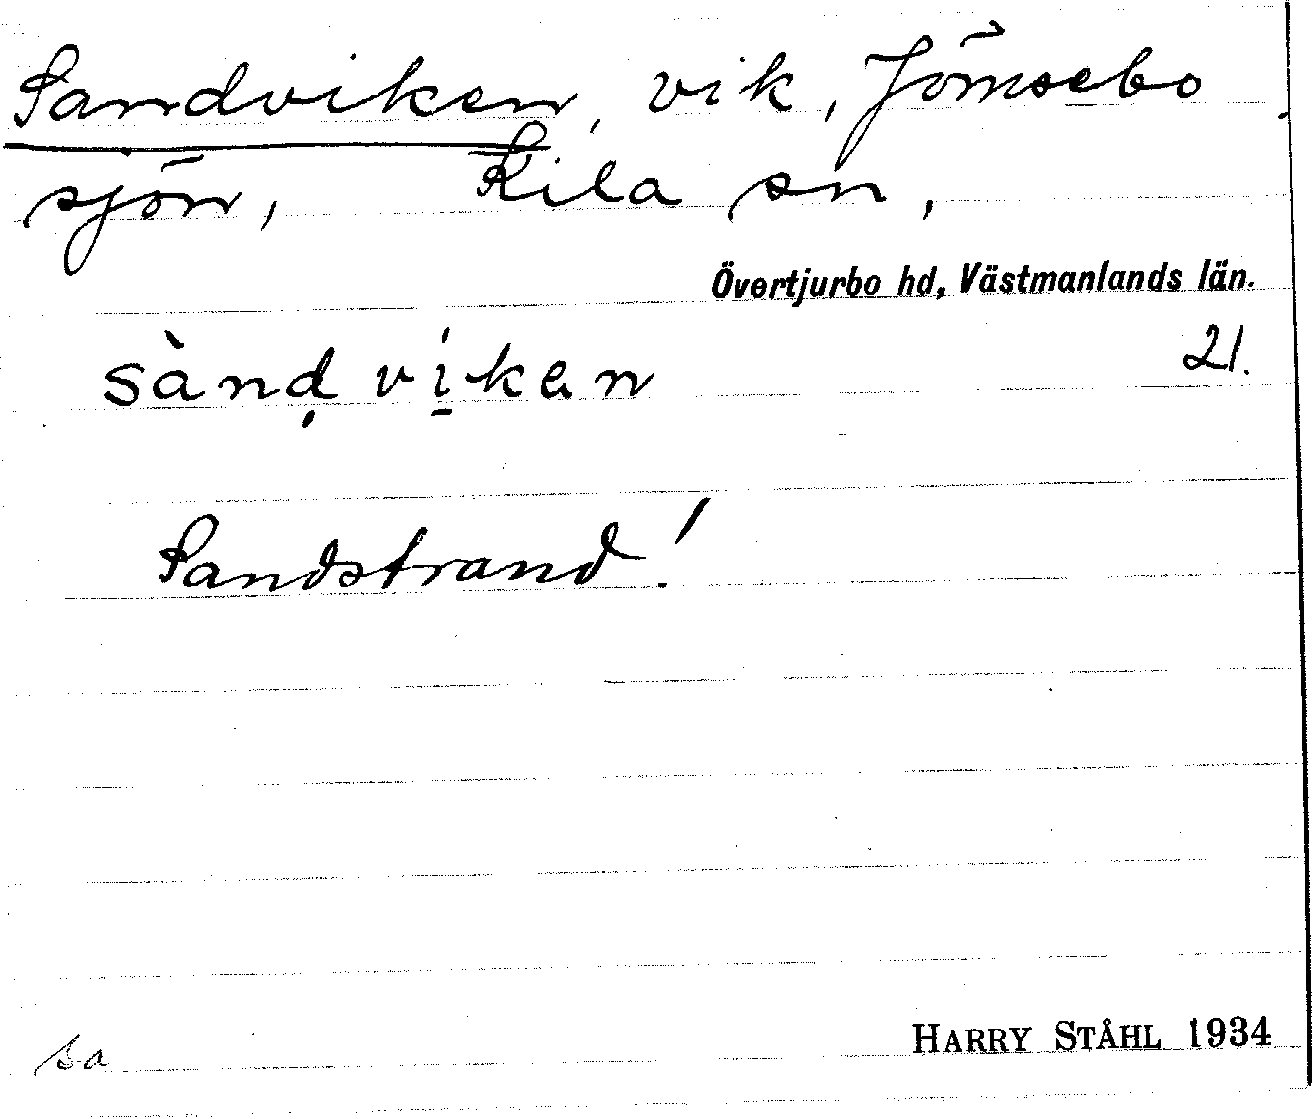 Sandviken, vik, Jömsebo
sjön, Kila sn,
Övertjurbo hd, Västmanlands län.
sànḍ víken 21.
Sandstrand!
sa
HARRY STÅHL 1934